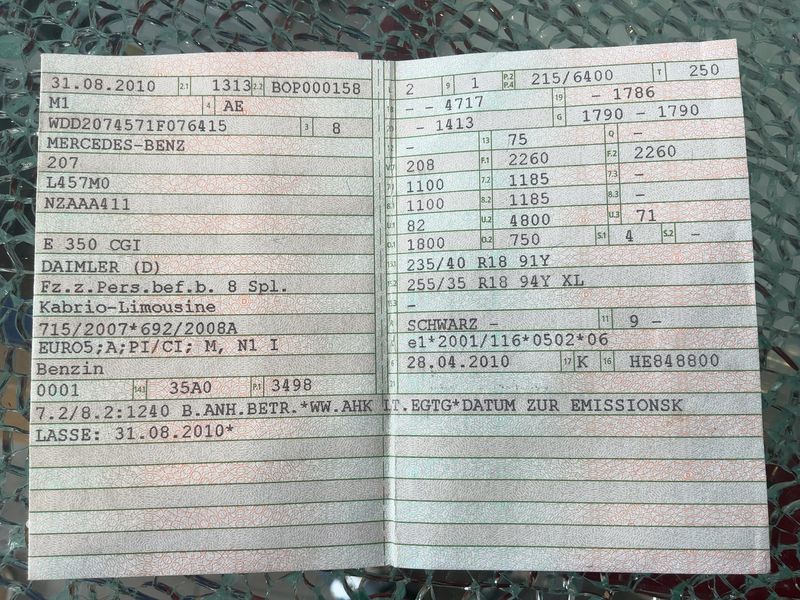 31.08.2010 2.1 1313 2.2 BOP000158
M1 4 AE
WDD2074571F076415 3 8
MERCEDES-BENZ
207
L457M0
NZAAA411
E 350 CGI
DAIMLER (D)
Fz.z.Pers.bef.b. 8 Spl.
Kabrio-Limousine
715/2007*692/2008A
EURO5;A;PI/CI; M, N1 I
Benzin
0001 14.1 35A0 P.1 3498
7.2/8.2:1240 B.ANH.BETR.*WW.AHK LT.EGTG*DATUM ZUR EMISSIONSK
LASSE: 31.08.2010*
L 2 9 1 P.2 P.4 215/6400 T 250
18 - - 4717 19 - 1786
20 - 1413 G 1790 - 1790
12 - 13 75 Q -
V.7 208 F.1 2260 F.2 2260
7.1 1100 7.2 1185 7.3 -
8.1 1100 8.2 1185 8.3 -
U.1 82 U.2 4800 U.3 71
O.1 1800 O.2 750 S.1 4 S.2 -
15.1 235/40 R18 91Y
15.2 255/35 R18 94Y XL
15.3 -
R SCHWARZ - 11 9 -
K e1*2001/116*0502*06
6 28.04.2010 17 K 16 HE848800
21